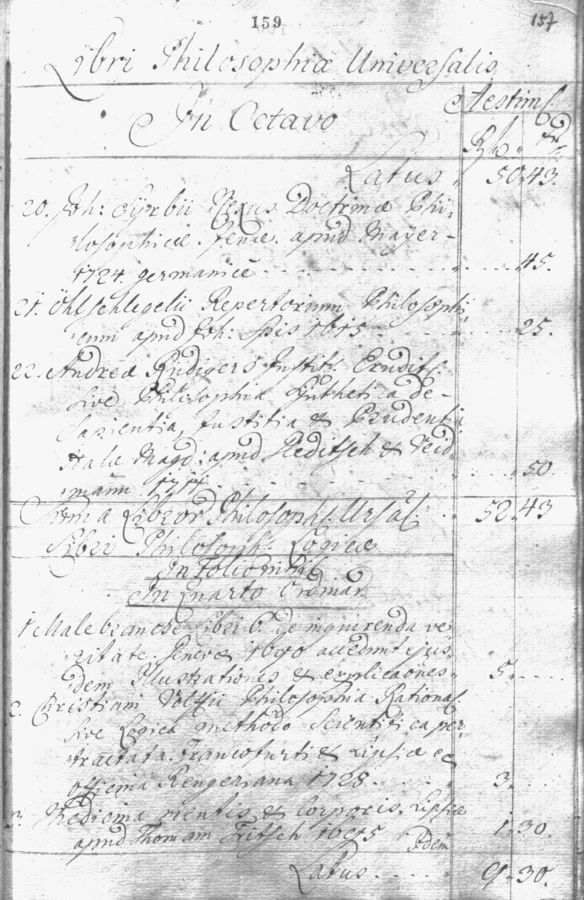 159
157
Libri Philosophiæ Universalis
In Octavo
Æstim.
Latus 50. 43.
20. Joh: Syrbii Nexus Doctrinæ Phi-
losophicæ. Jenæ. apud Mayer-
1724 germanice 45.
21. Öhlschlegelii Repertorium Philosophi
cum apud Joh: 1615 25.
22. Andreæ Rüdigers Instit: Erudit:
sive Philosophia Synthetica de-
Sapientia, Justitia & Prudentia
Halæ Magd: apud &
mann 50
Suma Libror Philosoph: Ursal: 52. 43
Libri Philosoph: Logicæ
In Folio
In Quarto Ordinar.
1 Malebranche libri 6. de inquirenda ve-
ritate. Genevæ 1690 accedunt ejus-
dem Illustrationes & explicaõnes 5.
2. Christiani Volffii Philosophia Rational
sive Logica methodo scientifica per
tractata. Francofurti & Lipsiæ ex
officina Rengeriana 1728. 3.
3. Medicina mentis & Corporis. Lipsiæ
apud Thomam Fritsch 1695 1. 30.
Latus 9. 30.